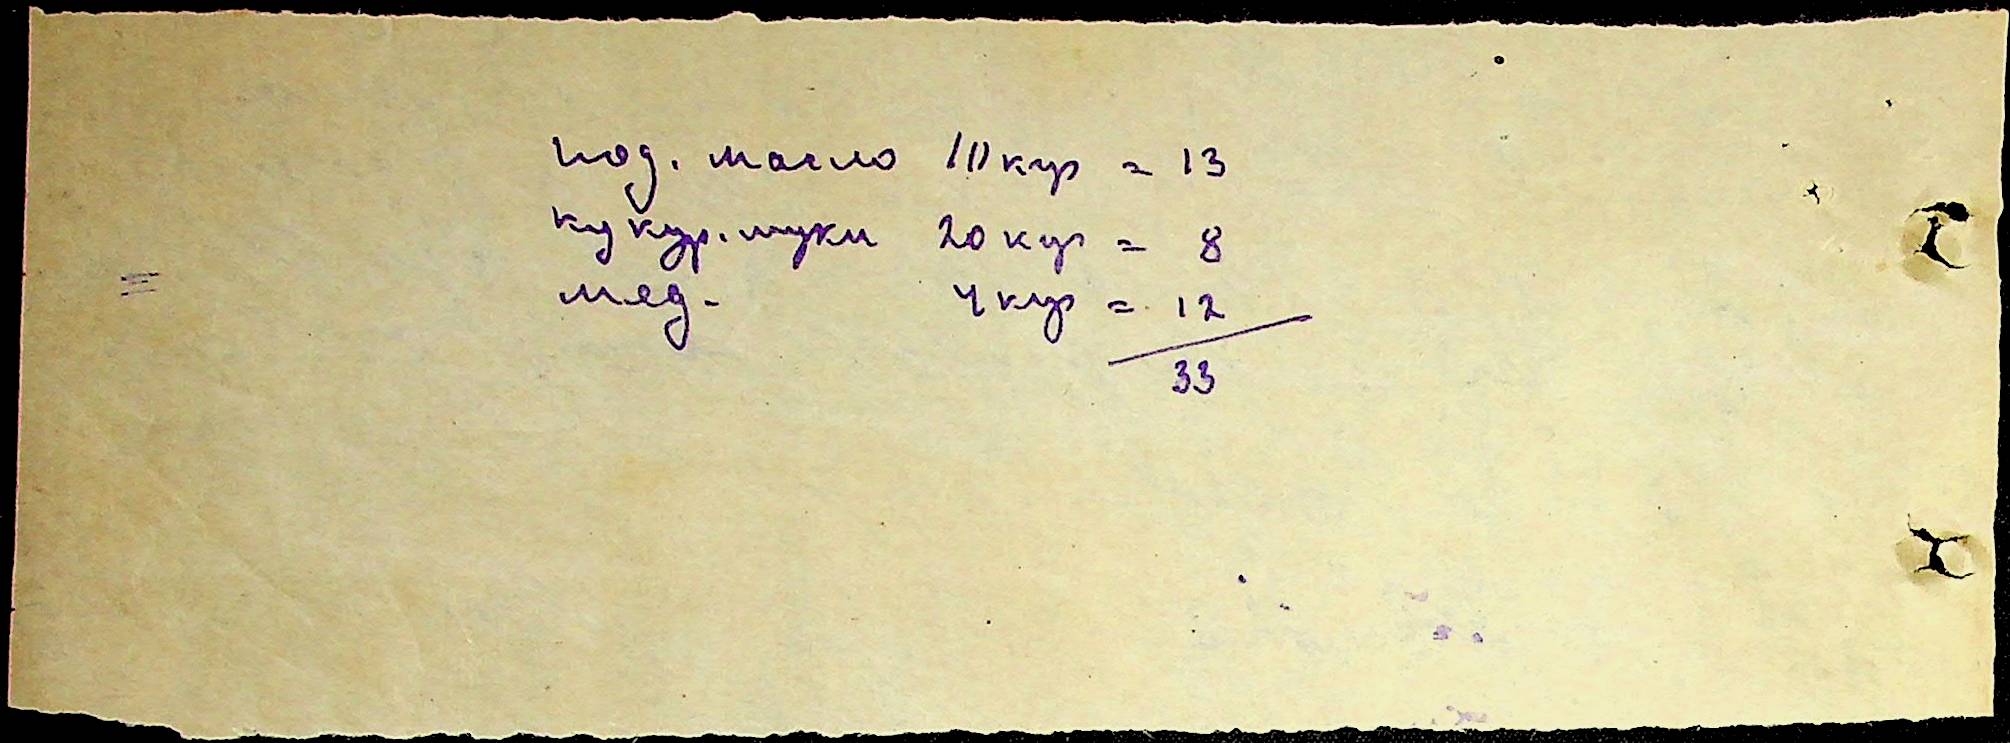 под. масло 10 кур = 13
кукур. муки 20 кур = 8
мед - 4 кур = 12
33